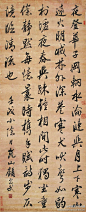 夜登華子岡輞水淪漣與月上下寒山
遠火明滅林外深巷寒犬吠聲如豹
村墟夜舂復與疏鐘相間此時獨坐僮
僕靜默多思曩昔攜手賦詩步仄
逕臨清流也 壬戌小春